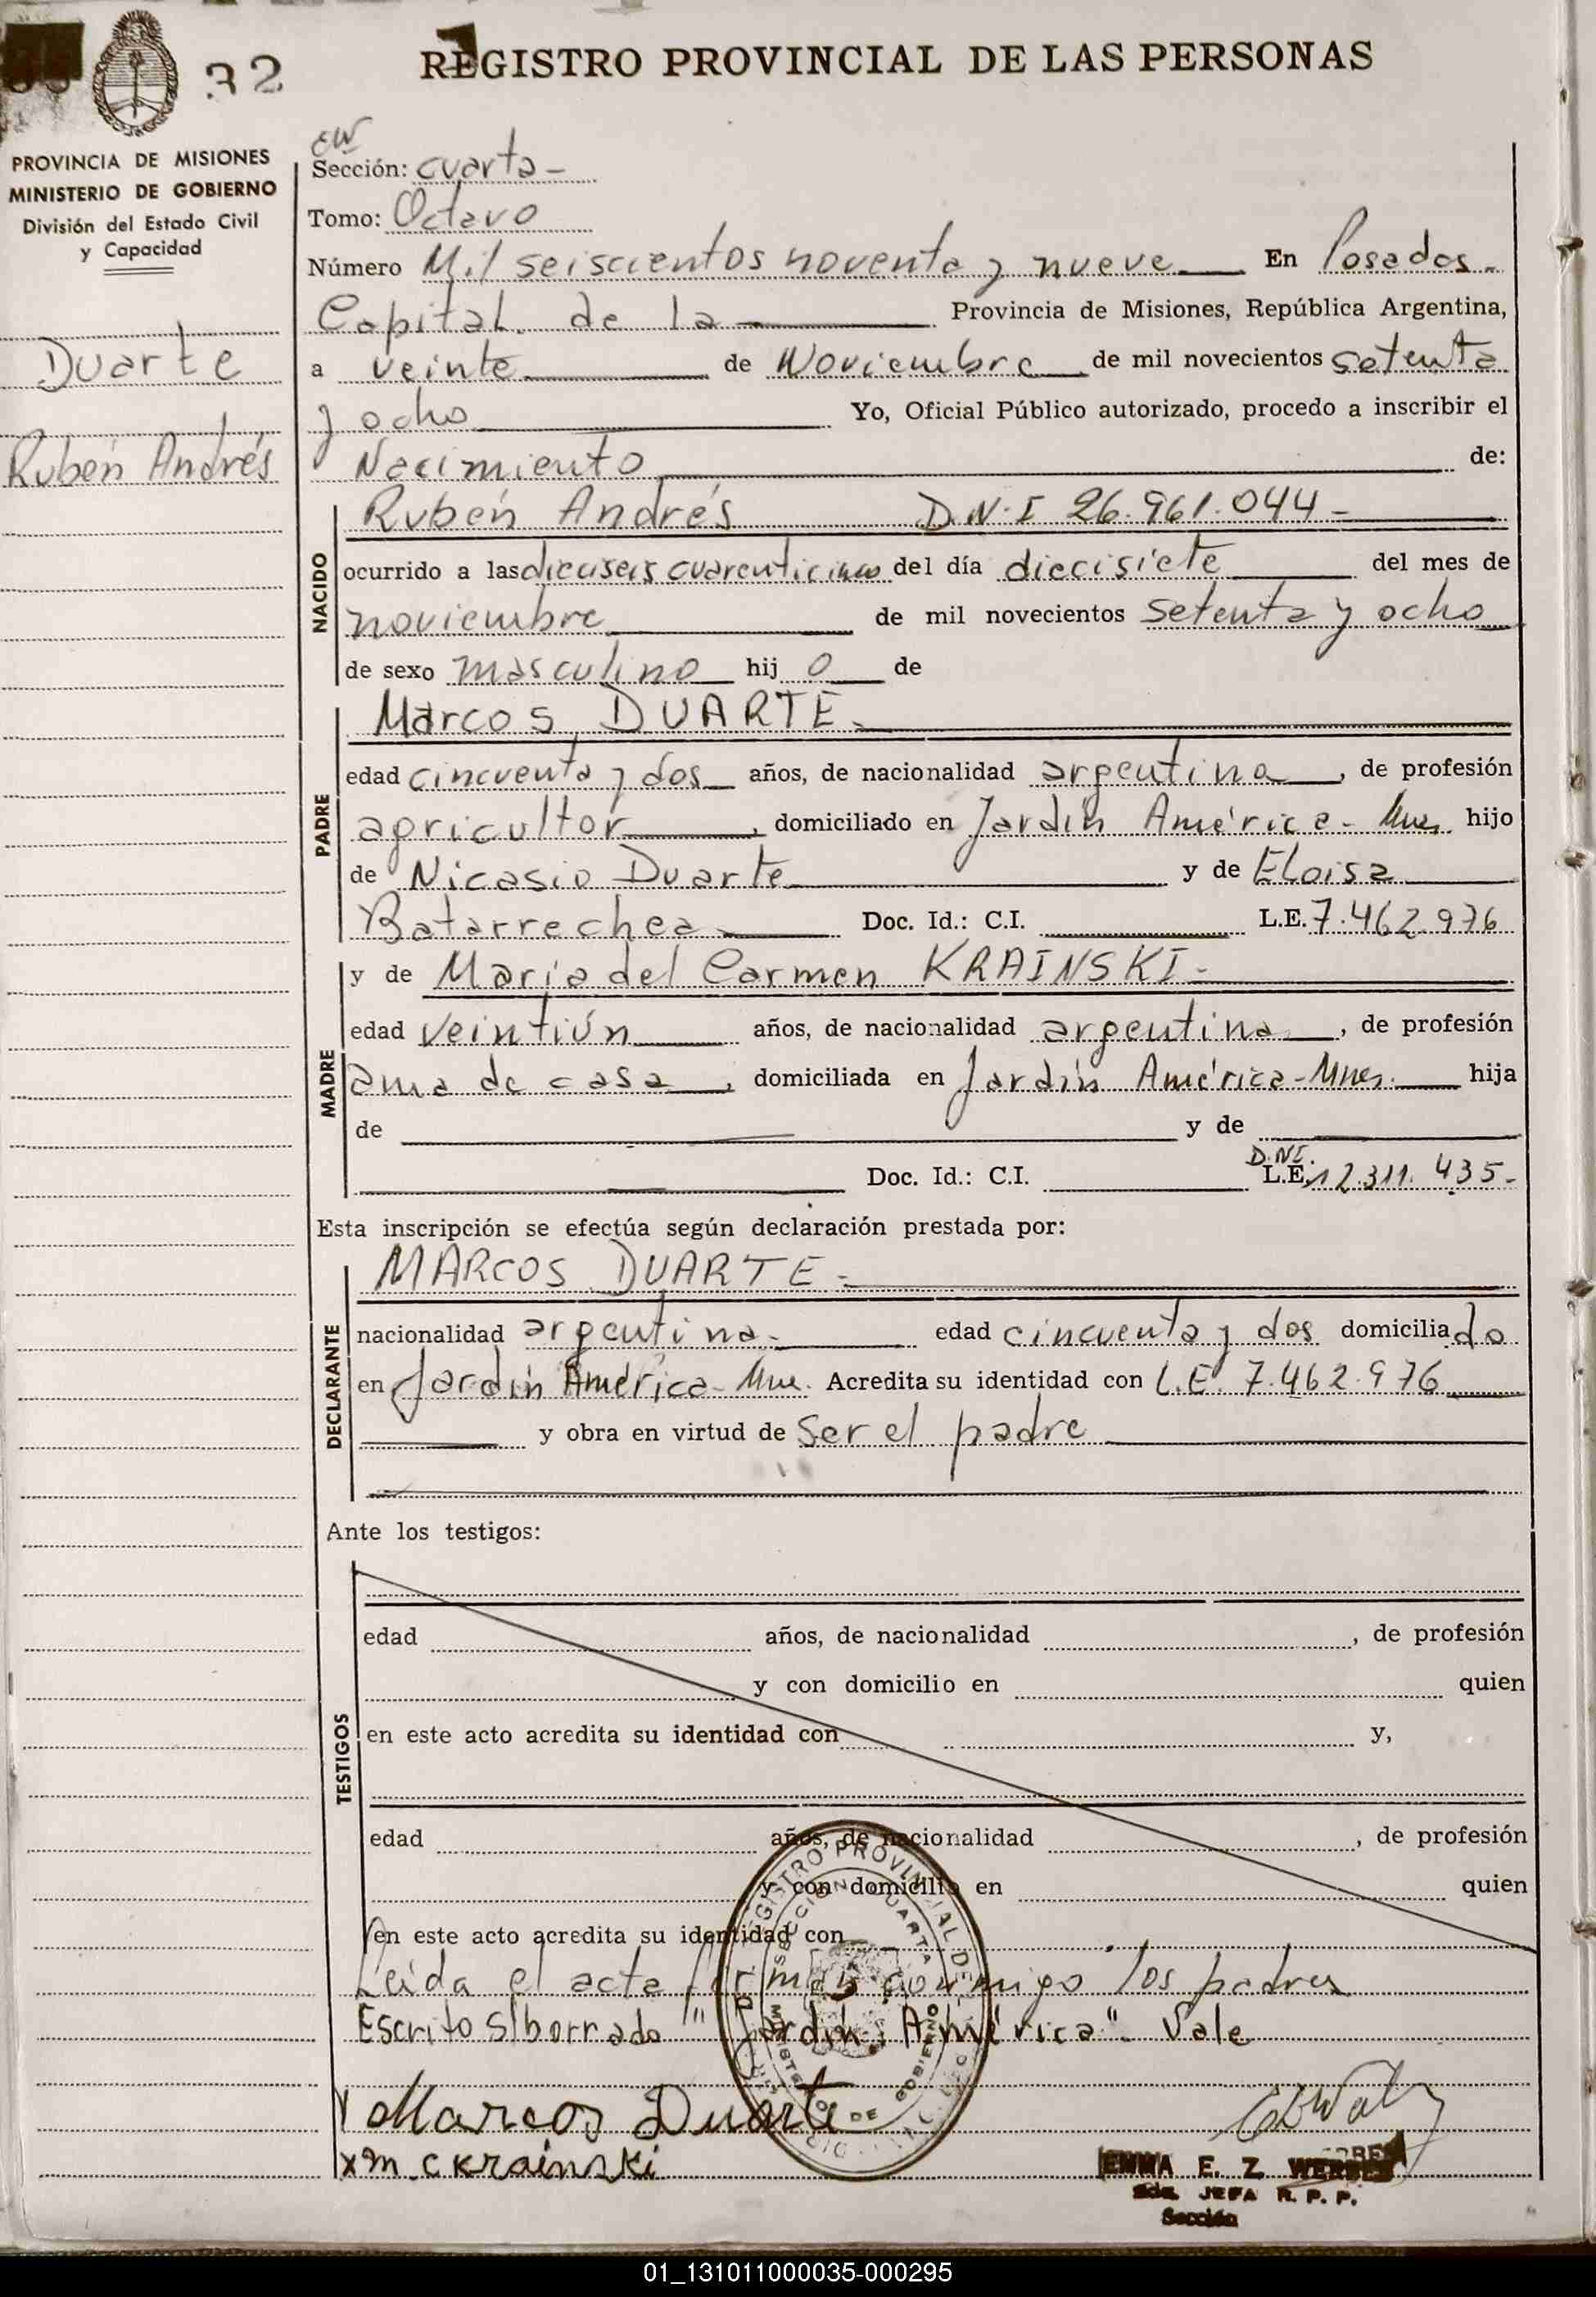 32
REGISTRO PROVINCIAL DE LAS PERSONAS
PROVINCIA DE MISIONES
MINISTERIO DE GOBIERNO
División del Estado Civil
y Capacidad
Duarte
Rubén Andrés
Sección: cuarta-
Tomo: Octavo
Número Mil seiscientos noventa y nueve En Posadas-
Capital de la Provincia de Misiones, República Argentina,
a veinte de Noviembre de mil novecientos setenta
y ocho Yo, Oficial Público autorizado, procedo a inscribir el
Nacimiento de:
NACIDO
Rubén Andrés D.N.I 26.961.044-
ocurrido a las dieciseis cuarenticinco del día diecisiete del mes de
noviembre de mil novecientos setenta y ocho
de sexo masculino hij o de
PADRE
Marcos DUARTE-
edad cincuenta y dos años, de nacionalidad argentina, de profesión
agricultor, domiciliado en Jardín América- Mnes. hijo
de Nicasio Duarte y de Eloisa
Batarrechea Doc. Id.: C.I. L.E. 7.462.976
MADRE
y de María del Carmen KRAINSKI-
edad veintiún años, de nacionalidad argentina, de profesión
ama de casa, domiciliada en Jardín América-Mnes. hija
de y de
D.NI.
Doc. Id.: C.I. L.E. 12.311.435-
Esta inscripción se efectúa según declaración prestada por:
DECLARANTE
MARCOS DUARTE-
nacionalidad argentina- edad cincuenta y dos domiciliado
en Jardín América- Mnes. Acredita su identidad con L.E. 7.462.976
y obra en virtud de ser el padre
Ante los testigos:
TESTIGOS
edad años, de nacionalidad , de profesión
y con domicilio en quien
en este acto acredita su identidad con y,
edad años, de nacionalidad , de profesión
y con domicilio en quien
en este acto acredita su identidad con
Leída el acta firman conmigo los padres
Escrito s/borrado "Jardín América"- Vale
x Marcos Duarte
x m.c Krainski
EMMA E. Z.
JEFA R. P. P.
Sección
01_131011000035-000295